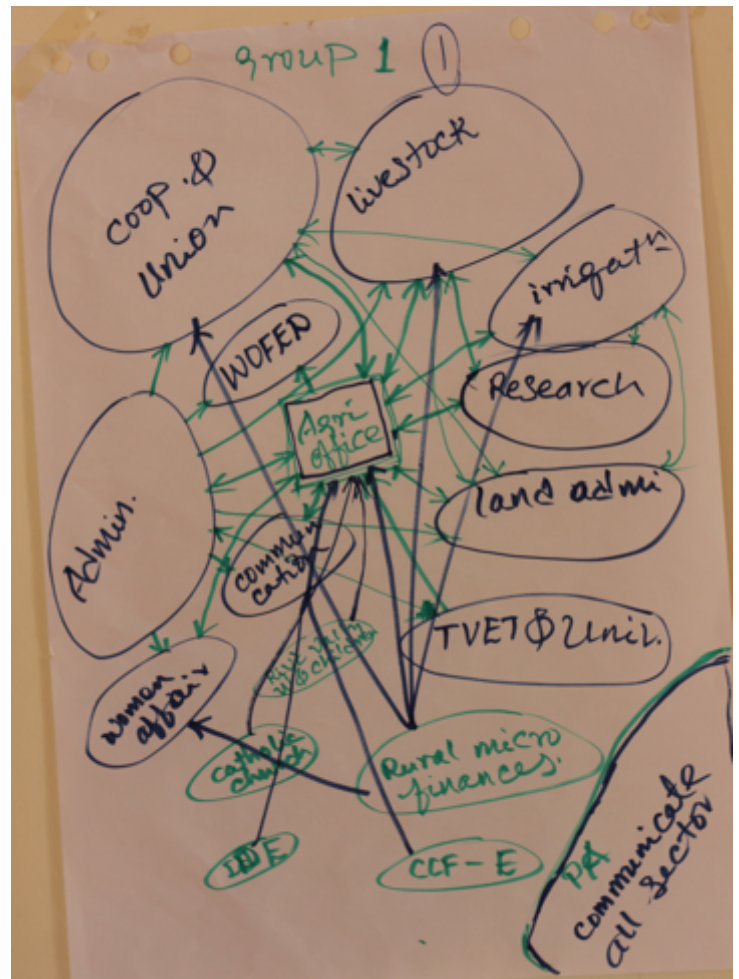 group 1
1
coop. &
Union
livestock
irrigatn
WOFED
Agri
office
Research
land admi
Admin.
commun
cation
TVET & Univ.
women
affair
catholic
church
Rural micro
finances.
IDE
CCF-E
PA
communicate
all sector